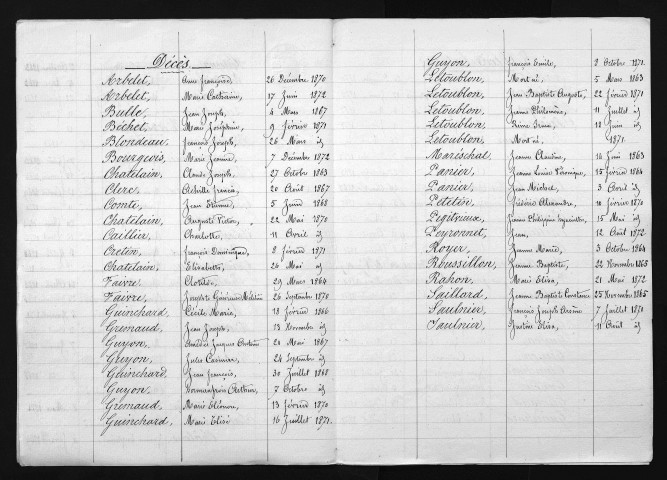 Décès
Arbelet, Anne Françoise 26 Décembre 1870
Arbelet, Marie Castorine 17 Juin 1872
Bulle, Jean Joseph 4 Mars 1867
Béchet, Marie Joséphine 9 février 1871
Blondeau, François Joseph 26 Mars id
Bourgeois, Marie Jeanne 7 Décembre 1872
Chatelain, Claude Joseph 27 Octobre 1863
Clerc, Achille Francis 20 Août 1867
Comte, Jean Etienne 5 Juin 1868
Chatelain, Auguste Victor 22 Mai 1870
Caillier, Charlotte 11 Avril id
Cretin, François Dominique 2 février 1871
Chatelain, Elisabeth 26 Mai id
Faivre, Clotilde 29 Mars 1864
Faivre, Josephte Généreuse 26 Septembre 1870
Guinchard, Cécile Marie 18 février 1866
Grimaud, Jean Joseph 13 Novembre id
Guyon, Jacques 21 Mai 1867
Guyon, Jules Casimir 24 Septembre id
Guinchard, Jean François 30 Juillet 1868
Guyon, Arthur 7 Octobre id
Grimaud, Marie Eléonore 13 février 1870
Guinchard, Marie Elise 16 Juillet 1871
Guyon, François Emile 2 Octobre 1871
Letoublon, Mort né 5 Mars 1863
Letoublon, Jean Baptiste Auguste 22 février 1871
Letoublon, Jeanne Philomène 11 Juillet id
Letoublon, Reine Irma 18 Juin id
Letoublon, Mort né 1871
Maréschal, Jeanne Claudine 14 Juin 1863
Panier, Jeanne Louise Véronique 15 février 1864
Panier, Jean Michael 3 Avril id
Petetin, Frédéric Alexandre 10 février 1870
Jeanne Philippine 15 Mai id
Peyronnet, Jean 12 Août 1872
Royer, Jeanne Marie 3 Octobre 1864
Roussillon, Jeanne Baptiste 22 Novembre 1865
Rahon, Marie Elisa 21 Mai 1872
Saillard, Jeanne Baptiste Constance 25 Novembre 1865
Saulnier, François Joseph 7 Juillet 1870
Saulnier, Justine Elisa 11 Août id